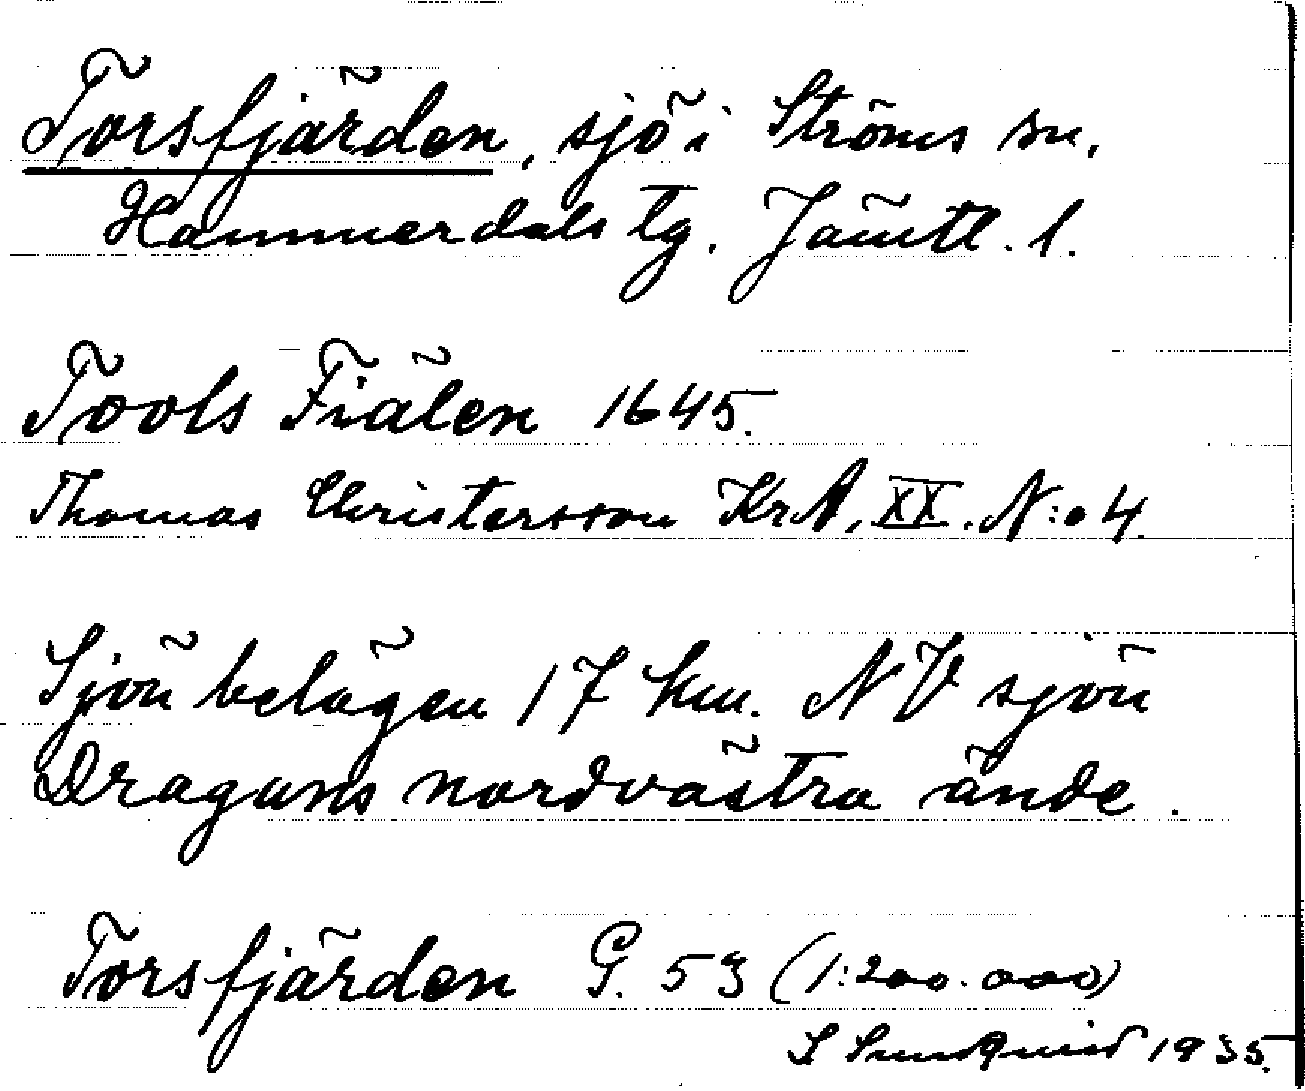 Torsfjärden, sjö i Ströms sn,
Hammerdals tg. Jämtl. l.
Tools Fiälen 1645.
Thomas Christersson KrA, XX. N:o 4.
Sjön belägen 17 km. NV sjön
Dragans nordvästra ände.
Torsfjärden G. 53 (1:200.000)
S Sundquist 1935.